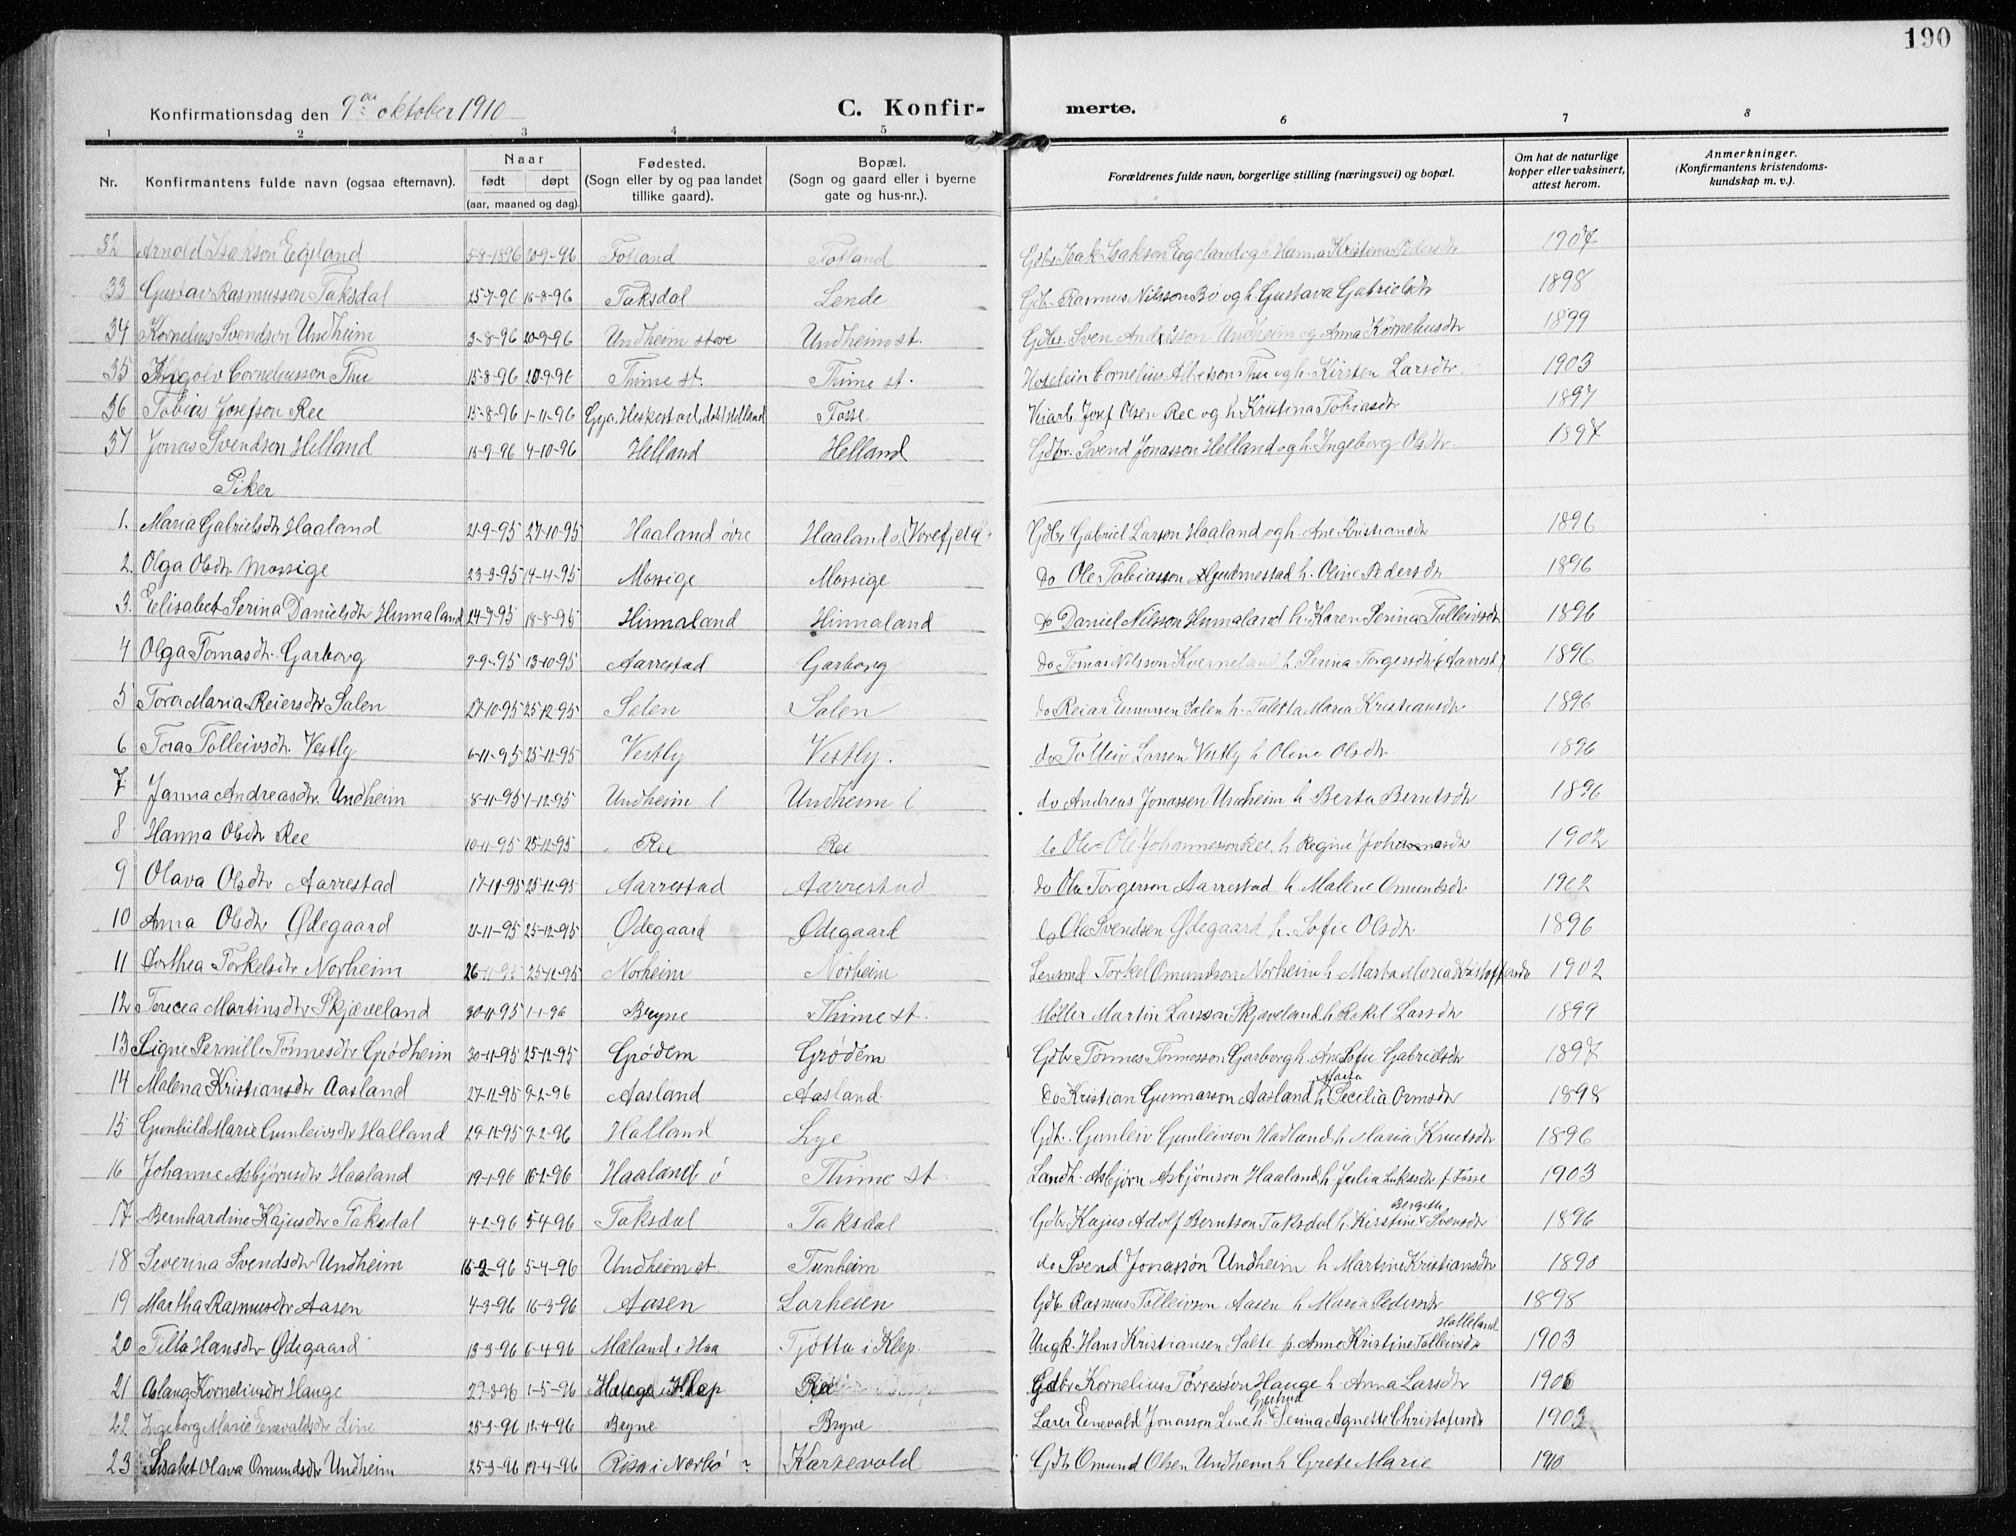 190
Konfirmationsdag den 9de oktober 1910
C. Konfir- merte.
1 2 3 4 5 6 7 8
Nr. Konfirmantens fulde navn (ogsaa efternavn). Naar født døpt (aar, maaned og dag). Fødested. (Sogn eller by og paa landet tillike gaard). Bopæl. (Sogn og gaard eller i byerne gate og hus-nr.). Forældrenes fulde navn, borgerlige stilling (næringsvei) og bopæl. Om hat de naturlige kopper eller vaksinert, attest herom. Anmerkninger. (Konfirmantens kristendoms-kundskap m. v.).
32 Arnold Isakson Egeland 5-8-1896 20-9-96 Fotland Fotland Gdbr Isak Isakson Egeland og h. Hanna Kristina Pedersdtr 1907
33 Gustav Rasmusson Taksdal 25-7-96 16-8-96 Taksdal Lende Gdb. Rasmus Nilsson Bø og h. Gustava Gabrielsdtr 1898
34 Kornelius Svendson Undheim 3-8-96 20-9-96 Undheim store Undheim st. Gdbr. Sven Andersson Undheim og Anna Korneliusdtr 1899
35 Ingolv Corneliusson Thu 15-8-96 20-9-96 Thime st. Thime st. Hotelein Cornelius Albetson Thu og h. Kirsten Larsdtr 1903
36 Tobias Josefson Ree 15-8-96 1-11-96 Heskestad, døbt Helland Fosse Veiarb Josef Olsen Ree og h Kristina Tobiasdtr 1897
37 Jonas Svendson Helland 15-9-96 4-10-96 Helland Helland Gdbr. Svend Jonasson Helland og h. Ingeborg Olsdtr. 1897
Piker
1. Maria Gabrielsdtr Haaland 21-9-95 27-10-95 Haaland øvre Haaland ø. Gdbr Gabriel Larson Haaland og h. Ane Kristiansdtr 1896
2. Olga Olsdtr Mossige 23-3-95 14-4-95 Mossige Mossige do Ole Tobiasson Gudmestad h. Oline Pedersdtr 1896
3. Elisabet Serina Danielsdtr Hinnaland 24-7-95 18-8-95 Hinnaland Hinnaland do Daniel Nilsson Hinnaland h. Karen Serina Tolleivsdtr 1896
4 Olga Tomasdtr. Garborg 9-9-95 13-10-95 Aarrestad Garborg do Tomas Nilsson Kverneland h. Serina Torgersdtr (Aarrest) 1896
5 Tora Maria Reiersdtr Salen 27-10-95 25-12-95 Salen Salen do Reiar Salen h. Taletta Maria Kristiansdtr 1896
6 Tora Tolleivsdtr. Vestly 6-11-95 25-12-95 Vestly Vestly. do Tolleiv Larsen Vestly h Oline Olsdtr 1896
7 Janna Andreasdtr. Undheim 8-11-95 1-12-95 Undheim l Undheim l do Andreas Jonassen Undheim h Berta Berntsdtr 1896
8 Hanna Olsdtr Ree 10-11-95 25-12-95 Ree Ree do Ole Johannesson Ree. h Regine Johannesdtr 1902
9 Olava Olsdtr Aarrestad 17-11-95 25-12-95 Aarrestad Aarrestad do Ola Torgerson Aarrestad h. Malene Omundsdtr 1902
10 Anna Olsdtr Ødegaard 21-11-95 25-12-95 Ødegaard Ødegaard do Ola Svendsen Ødegaard h. Sofie Olsdtr 1896
11 Dorthea Torkelsdtr Norheim 26-11-95 25-12-95 Norheim Norheim Lensmd Torkel Omundson Norheim h Marta Maria Kristoffersdtr 1902
12 Terecea Martinsdtr Skjæveland 30-11-95 1-1-96 Bryne Thime st. Møller Martin Larsson Skjæveland h Rakel Larsdtr 1899
13 Signe Pernille Tønnesdtr Grødheim 30-11-95 25-12-95 Grødem Grødem Gdbr Tønnes Tønnesson Garborg h. Ane Sofie Gabrielsdtr 1897
14 Malena Kristiansdtr Aasland 27-12-95 9-2-96 Aasland Aasland do Kristian Gunnarson Aasland h Maria Cecilia Ormsdtr 1898
15 Gunhild Marie Gunleivsdtr Halland 29-12-95 9-2-96 Halland Lye Gdb. Gunleiv Gunleivson Hadland h Maria Knutsdtr 1896
16 Johanne Asbjørnsdtr Haaland 19-1-96 16-2-96 Haaland ø Thime st. Landh. Asbjørn Asbjørnson Haaland h. Julia Luksdtr f. Fosse 1903
17 Bernhardine Kajusdtr Taksdal 4-2-96 5-4-96 Taksdal Taksdal Gdbr Kajus Adolf Berntson Taksdal h. Kirstine Bergith Svensdtr 1896
18 Severina Svendsdtr Undheim 16-2-96 5-4-96 Undheim st. Tunheim do Svend Jonassøn Undheim h Martine Kristiansdtr 1898
19 Martha Rasmusdtr Aasen 4-3-96 16-3-96 Aasen Lorheien Gdb. Rasmus Tolleivson Aasen h Maria Pedersdtr 1898
20 Tilla Hansdtr Ødegaard 15-3-96 6-4-96 Mæland i Haa Tjøtta i Klep. Ungk. Hans Kristiansen Salte p. Anne Kristine Tolleivsdtr Halleland 1903
21 Aslaug Korneliusdtr Hauge 27-3-96 1-5-96 Hauge i Klep Ree Gdbr Kornelius Tørressøn Hauge h. Anna Larsdtr 1906
22 Ingeborg Marie Enevaldsdtr Line 25-3-96 12-4-96 Bryne Bryne Lærer Enevald Jonasson Line h Gjertrud Serina Agnette Christofersdtr 1903
23 Lisabet Olava Omundsdtr Undheim 25-3-96 19-4-96 Risa i Nærbø ? Karsevold Gdb Omund Olsen Undheim h Grete Marie 1910